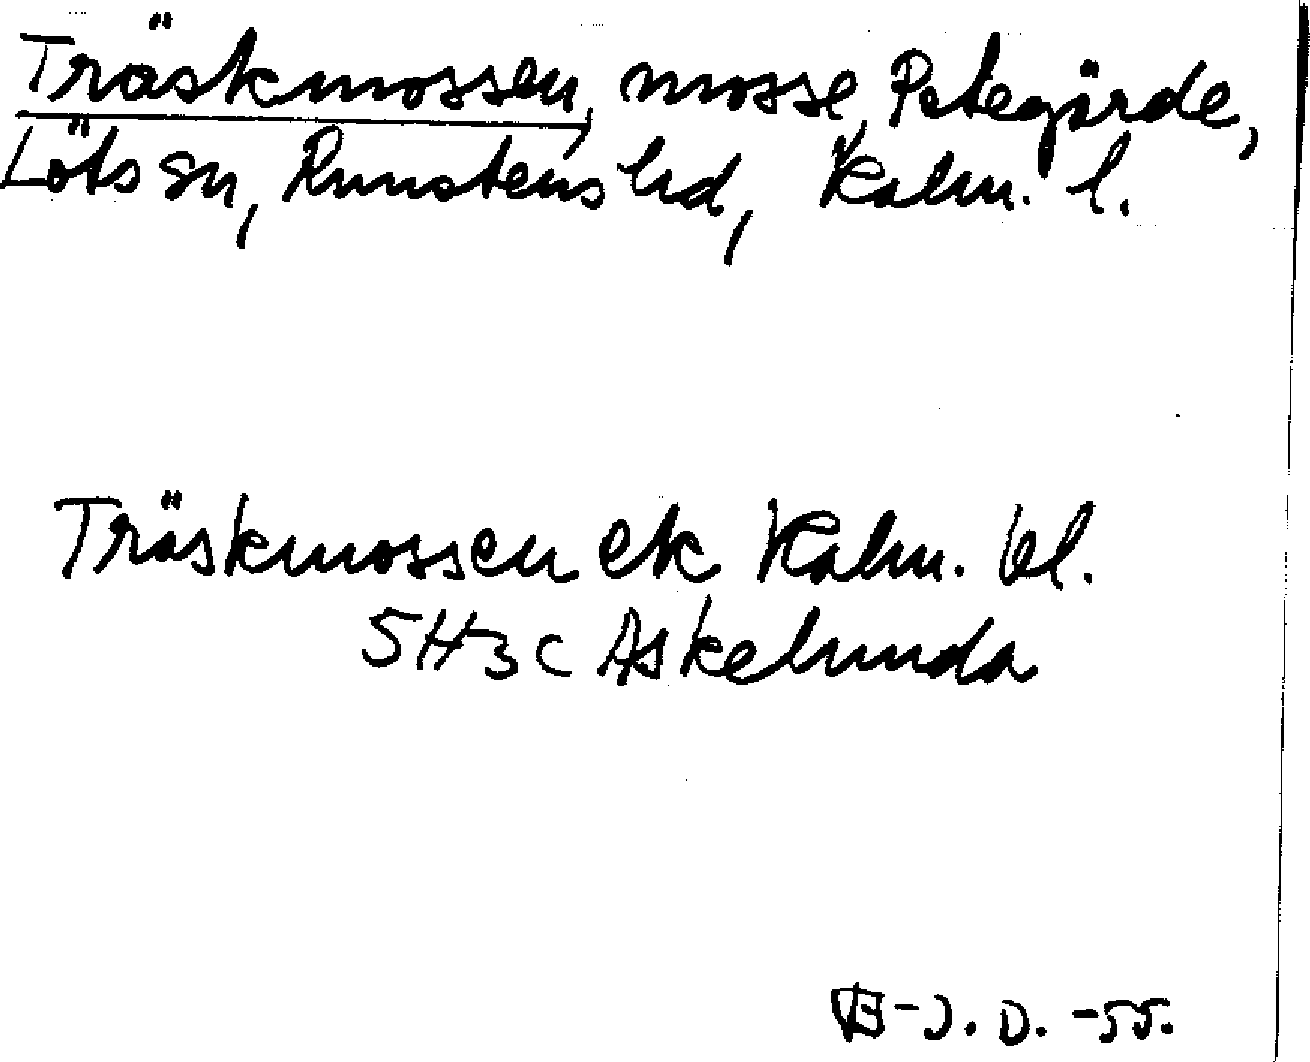 Träskmossen, mosse, Petegärde,
Löts sn, Runstens hd, Kalm. l.
Träskmossen ek Kalm. bl.
5H3c Askelunda
B-J. D. -55.